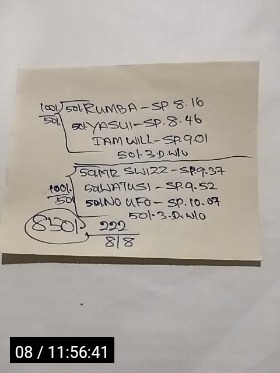 100/- 50/- RUMBA - SP. 8.16
50/- 50/- YASUI - SP. 8.46
I AM WILL - SP. 9.01
50/- 3.D. W/O
50/- MR SWIZZ - SP. 9.37
100/- 50/- WATUSI - SP. 9.52
50/- 50/- NO UFO - SP. 10.07
50/- 3.D. W/O
850/- 222
8/8
08 / 11:56:41